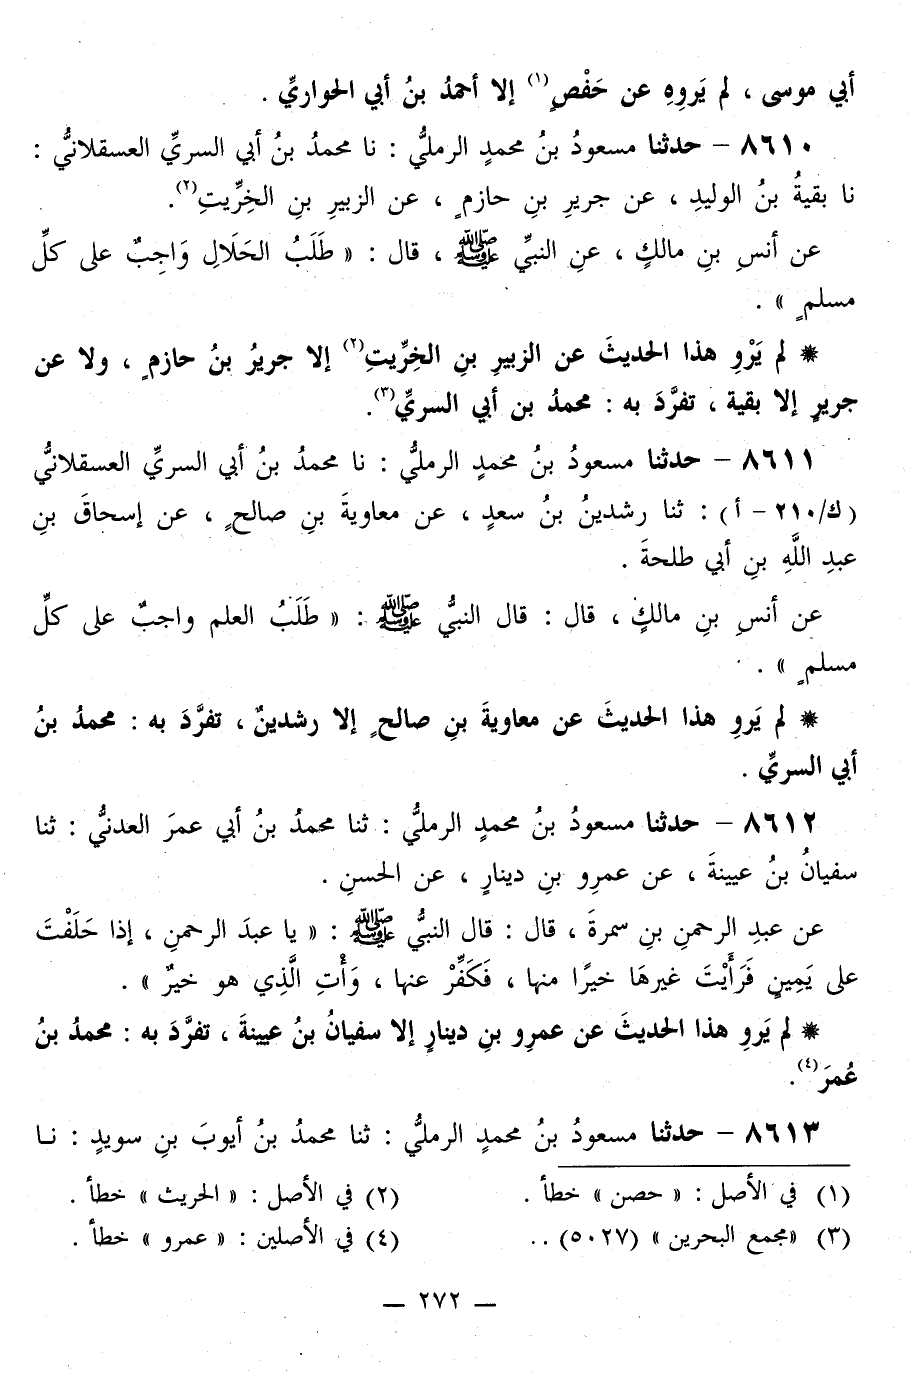 أبي موسى ، لم يَروِهِ عن حَفْصٍ(١) إلا أحمدُ بنُ أبي الحواريِّ .
٨٦١٠ – حدثنا مسعودُ بنُ محمدٍ الرمليُّ : نا محمدُ بنُ أبي السريِّ العسقلانيُّ :
نا بقيةُ بنُ الوليدِ ، عن جريرِ بنِ حازمٍ ، عن الزبيرِ بنِ الخِرِّيتِ(٢).
عن أنسِ بنِ مالكٍ ، عنِ النبيِّ ﷺ ، قال : « طَلَبُ الحَلَالِ وَاجِبٌ على كلِّ
مسلمٍ » .
* لم يَرْوِ هذا الحديثَ عن الزبيرِ بنِ الخِرِّيتِ(٢) إلا جريرُ بنُ حازمٍ ، ولا عن
جريرٍ إلا بقية ، تفرَّدَ به : محمدُ بن أبي السريِّ(٣).
٨٦١١ – حدثنا مسعودُ بنُ محمدٍ الرمليُّ : نا محمدُ بنُ أبي السريِّ العسقلانيُّ
(ك/٢١٠ – أ) : ثنا رشدينُ بنُ سعدٍ ، عن معاويةَ بنِ صالحٍ ، عن إسحاقَ بنِ
عبدِ اللَّهِ بنِ أبي طلحةَ .
عن أنسِ بنِ مالكٍ ، قال : قال النبيُّ ﷺ : « طَلَبُ العلم واجبٌ على كلِّ
مسلمٍ » .
* لم يَروِ هذا الحديثَ عن معاويةَ بنِ صالحٍ إلا رشدينٌ ، تفرَّدَ به : محمدُ بنُ
أبي السريِّ .
٨٦١٢ – حدثنا مسعودُ بنُ محمدٍ الرمليُّ : ثنا محمدُ بنُ أبي عمرَ العدنيُّ : ثنا
سفيانُ بنُ عيينةَ ، عن عمرِو بنِ دينارٍ ، عن الحسنِ .
عن عبدِ الرحمنِ بنِ سمرةَ ، قال : قال النبيُّ ﷺ : « يا عبدَ الرحمنِ ، إذا حَلَفْتَ
على يَمِينٍ فَرَأَيْتَ غيرهَا خيرًا منها ، فَكَفِّرْ عنها ، وَأْتِ الَّذِي هو خيرٌ » .
* لم يَروِ هذا الحديثَ عن عمرِو بنِ دينارٍ إلا سفيانُ بنُ عيينةَ ، تفرَّدَ به : محمدُ بنُ
عُمرَ(٤).
٨٦١٣ – حدثنا مسعودُ بنُ محمدٍ الرمليُّ : ثنا محمدُ بنُ أيوبَ بنِ سويدٍ : نـا
(١) في الأصل : « حصن » خطأ .
(٢) في الأصل : « الحريث » خطأ .
(٣) «مجمع البحرين » (٥٠٢٧) . .
(٤) في الأصلين : « عمرو » خطأ .
– ٢٧٢ –